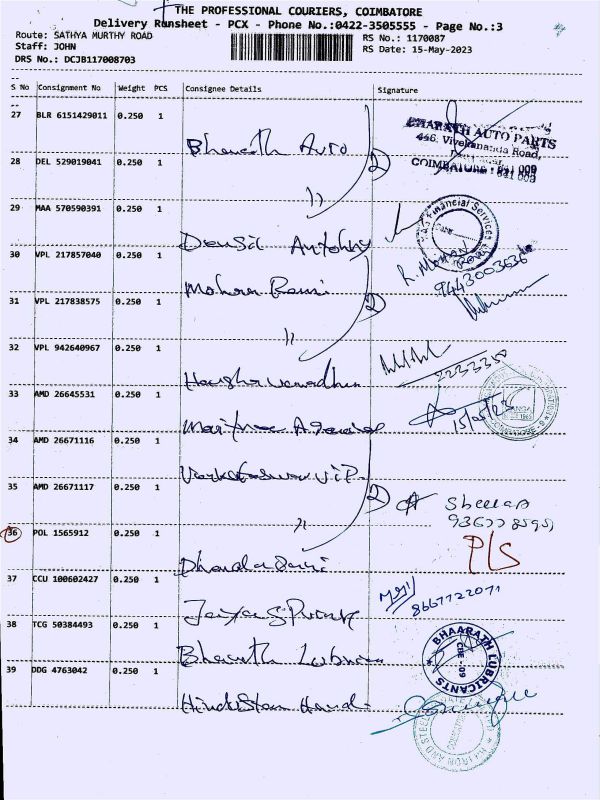 THE PROFESSIONAL COURIERS, COIMBATORE
Delivery Runsheet - PCX - Phone No.:0422-3505555 - Page No.:3
Route: SATHYA MURTHY ROAD
RS No.: 1170087
Staff: JOHN
RS Date: 15-May-2023
DRS No.: DCJB117008703
S No Consignment No Weight PCS Consignee Details Signature
27 BLR 6151429011 0.250 1
Bharath Auto
BHARATH AUTO PARTS
446, Vivekananda Road,
COIMBATORE - 641 009
28 DEL 529019041 0.250 1
2
"
29 MAA 570590391 0.250 1
Financial Services
Antohny
30 VPL 217857040 0.250 1
R. Mohan
9443003636
Mohan
31 VPL 217838575 0.250 1
2
"
32 VPL 942640967 0.250 1
2233350
33 AMD 26645531 0.250 1
15/05/23
34 AMD 26671116 0.250 1
V.P.
35 AMD 26671117 0.250 1
2
"
Sheela
36 POL 1565912 0.250 1
P/S
37 CCU 100602427 0.250 1
8667122071
38 TCG 50384493 0.250 1
Bharath
BHAARATH LUBRICANTS
CBE -09
39 DDG 4763042 0.250 1
Hindustan
IRON AND STEEL